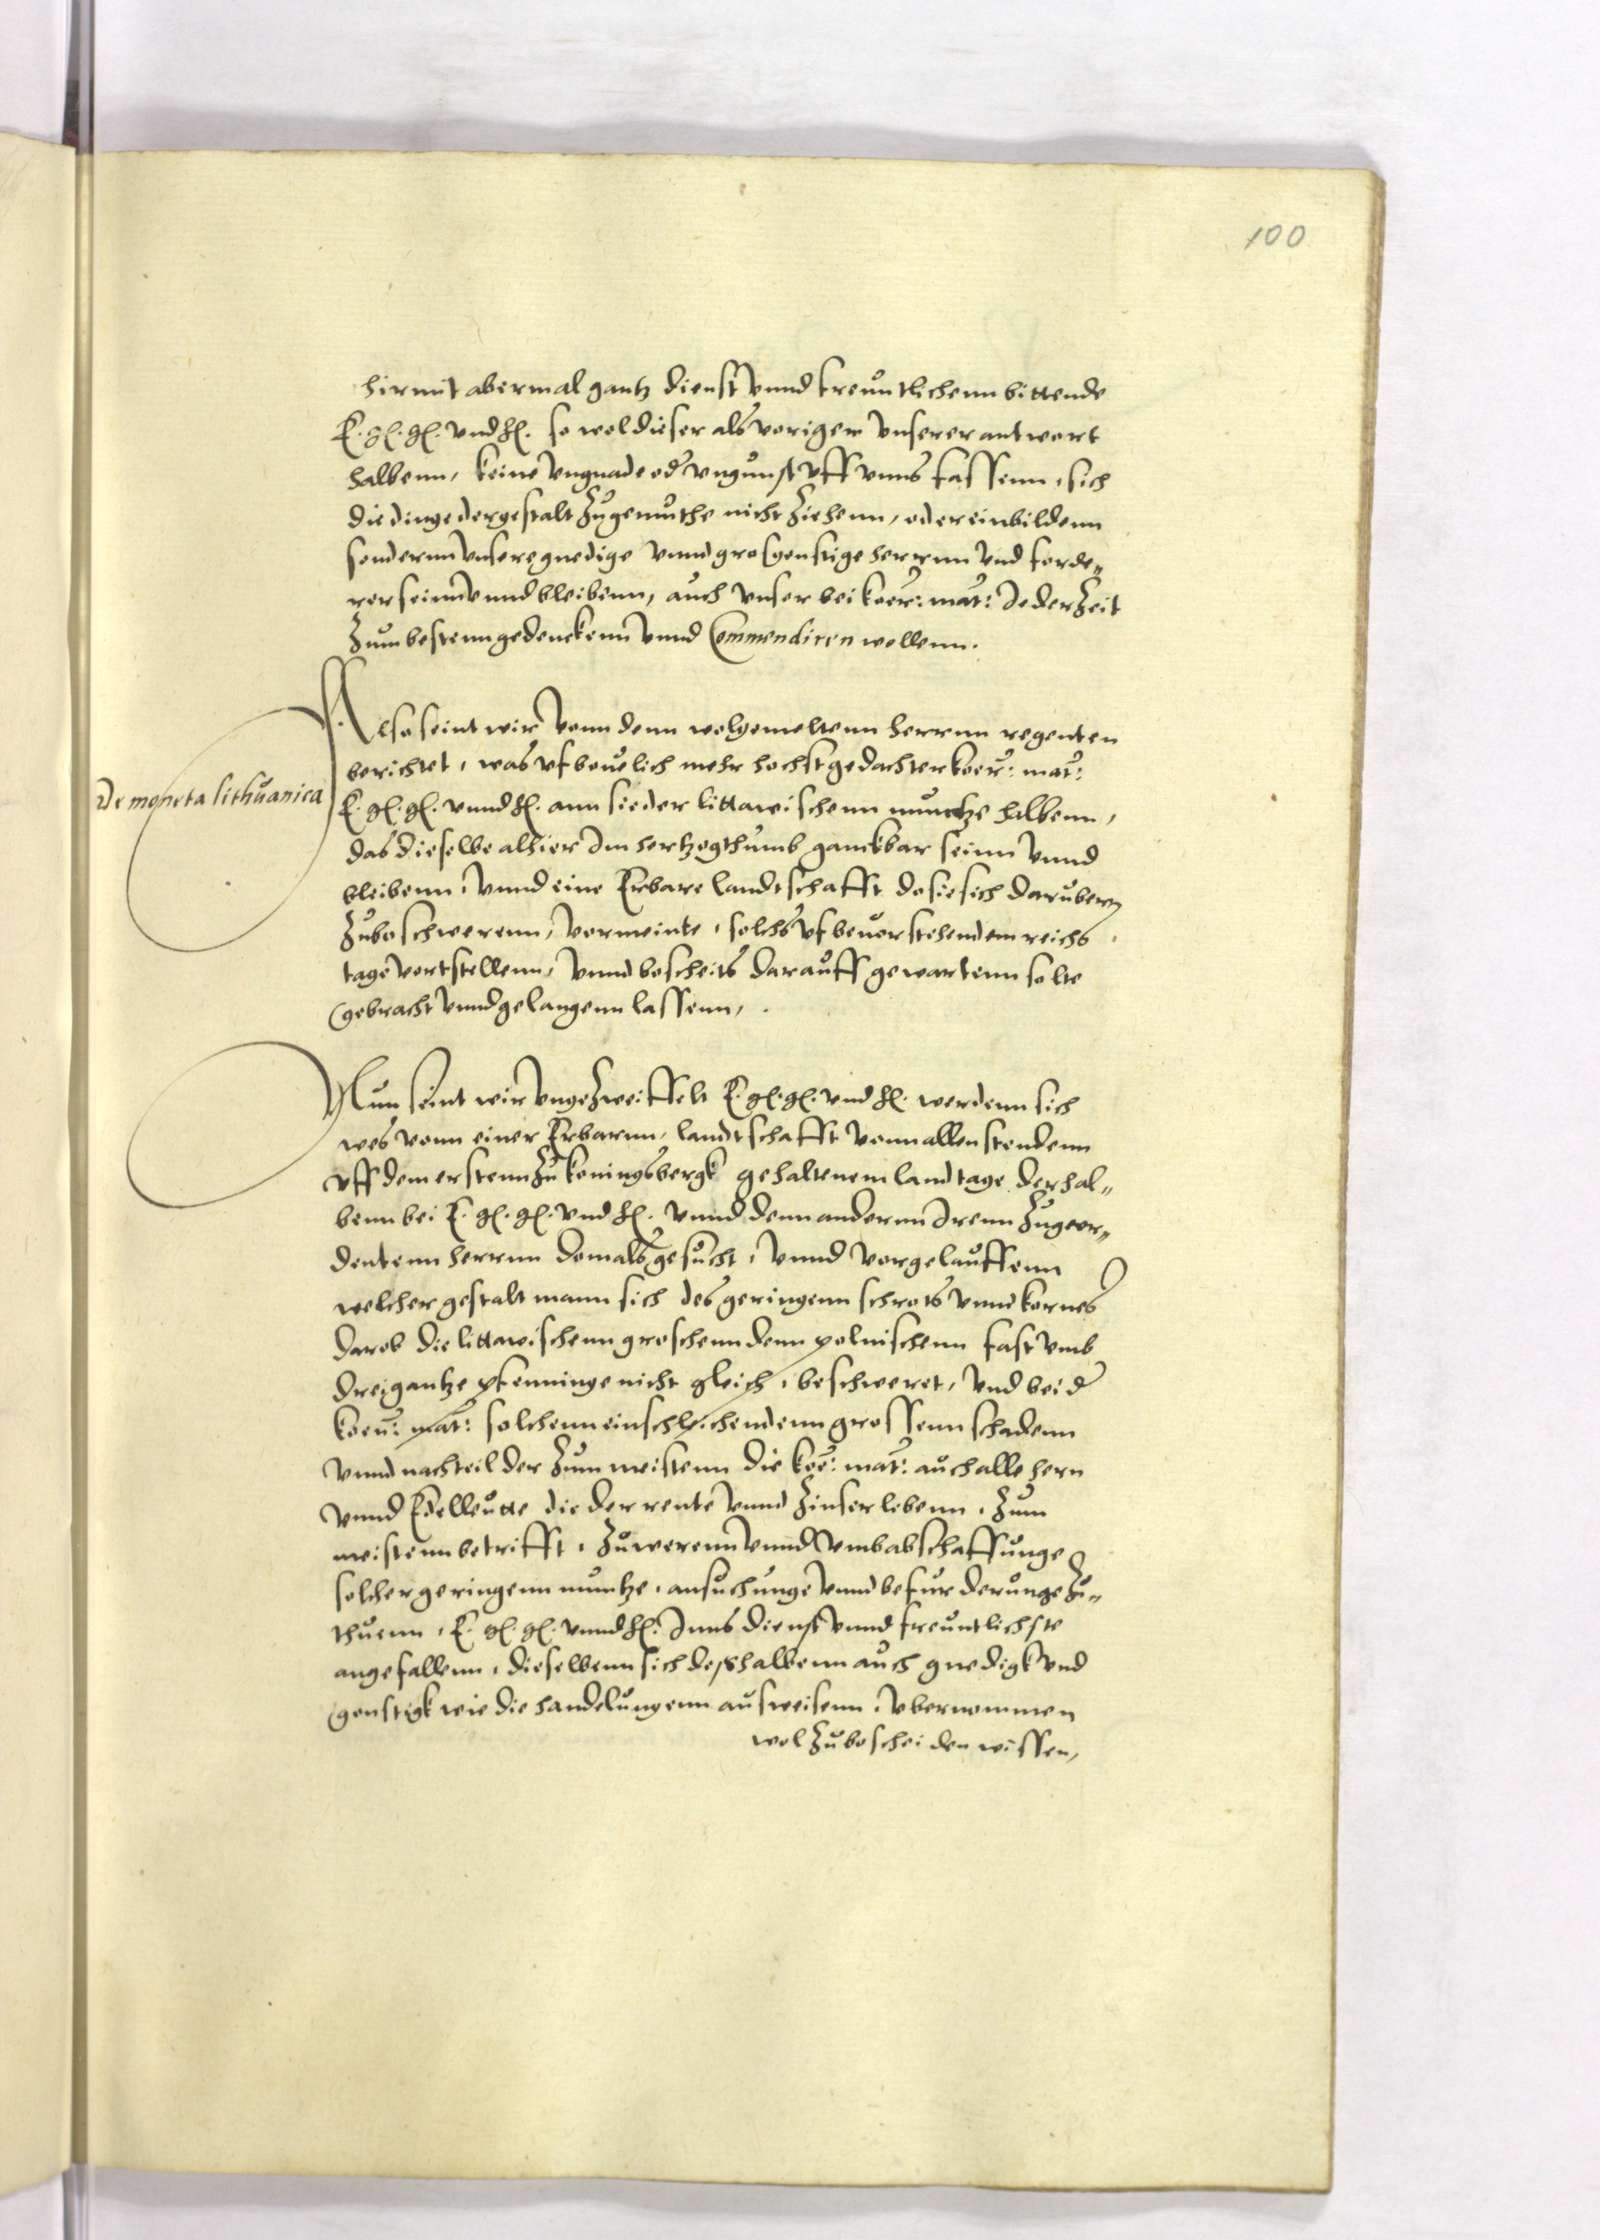 100
hirmit abermal gantz dienst vnnd freuntlichenn bittende
E. gl. gl. vnd hl. so wol dieser als voriger vnserer antwort
halbenn, keine vngnade od vngunst vff vnns fassenn, sich
die dinge dergestalt zu gemuthe nicht ziehenn, oder einbildenn
sondernn vnsere gnedige vnnd grosgonstige herrnn vnd forde„
rer seinn vnnd bleibenn, auch vnser bei koer: mat: Jederzeit
zum bestenn gedenckenn vnnd Commendiren wollenn.
Also seint wir vonn denn wolgemeltenn herrnn regenten
berichtet, was vf beuelich mehr hochstgedachter koer: mat:
De moneta lithuanica
E. gl. gl. vnnd hl. ann sie der littawischenn muntze halbenn,
das dieselbe alhier Im hertzogthumb ganckbar seinn vnnd
bleibenn, vnnd eine Erbare landtschafft do sie sich daruber
zuboschwerenn, vormeinte, solchs vf beuorstehendem reichs
tage vortstellenn, vnnd boscheits darauff gewartenn solte
gebracht vnnd gelangenn lassenn,
Nun seint wir vngezweiffelt E. gl. gl. vnd hl. werdenn sich
wes vonn einer Erbarnn, landtschafft vonn allen stendenn
vff dem erstenn zu koningsbergk gehaltenem landtage derhal„
benn bei E. gl. gl. vnd hl. vnnd denn andernn Irenn zugeor„
dentenn herrnn domals gesucht, vnnd vorgelauffenn
welcher gestalt mann sich des geringenn schrots vnnd kornes
darob die littawischenn groschenn denn polnischenn fast vmb
drei gantze pfenninge nicht gleich, beschweret, vnd bei d
koer: mat: solchenn einschleichendenn grossenn schadenn
vnnd nachteil der zum meistenn die koe: mat: auch alle hern
vnnd Edelleutte die der rente vnnd zinser lebenn, zum
meistenn betrifft, zu werenn vnnd vmb abschaffunge
solcher geringenn muntze, ansuchunge vnnd befurderunge zu„
thuenn, E. gl. gl. vnnd hl. Inns dienst vnnd freuntlichste
angefallenn, dieselbenn sich deshalbenn auch gnedigk vnd
gonstigk wie die handelungenn ausweisenn, vbernommen
wol zuboscheiden wissen,